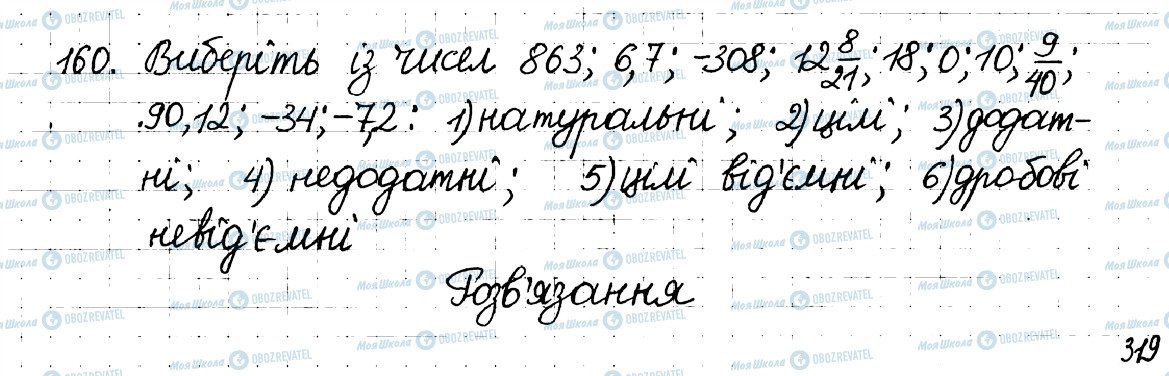 160. Виберіть із чисел 863; 6,7; -308; 12 8/21; 18; 0; 10; 9/40;
90,12; -34; -7,2: 1) натуральні; 2) цілі; 3) додат-
ні; 4) недодатні; 5) цілі від'ємні; 6) дробові
невід'ємні
Розв'язання
319